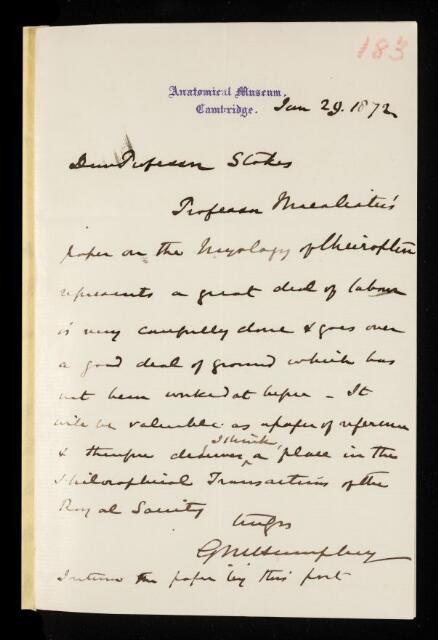 183
Anatomical Museum,
Cambridge. Jan 29. 1872
Dear Professor Stokes
Professor Macalister's
paper on the Myology of Cheiroptera
represents a great deal of labour
is very carefully done & goes over
a good deal of ground which has
not been worked at before - It
will be valuable as a paper of reference
& therefore deserves, I think, a place in the
Philosophical Transactions of the
Royal Society
Yrs
G M Humphry
I return the paper by this post